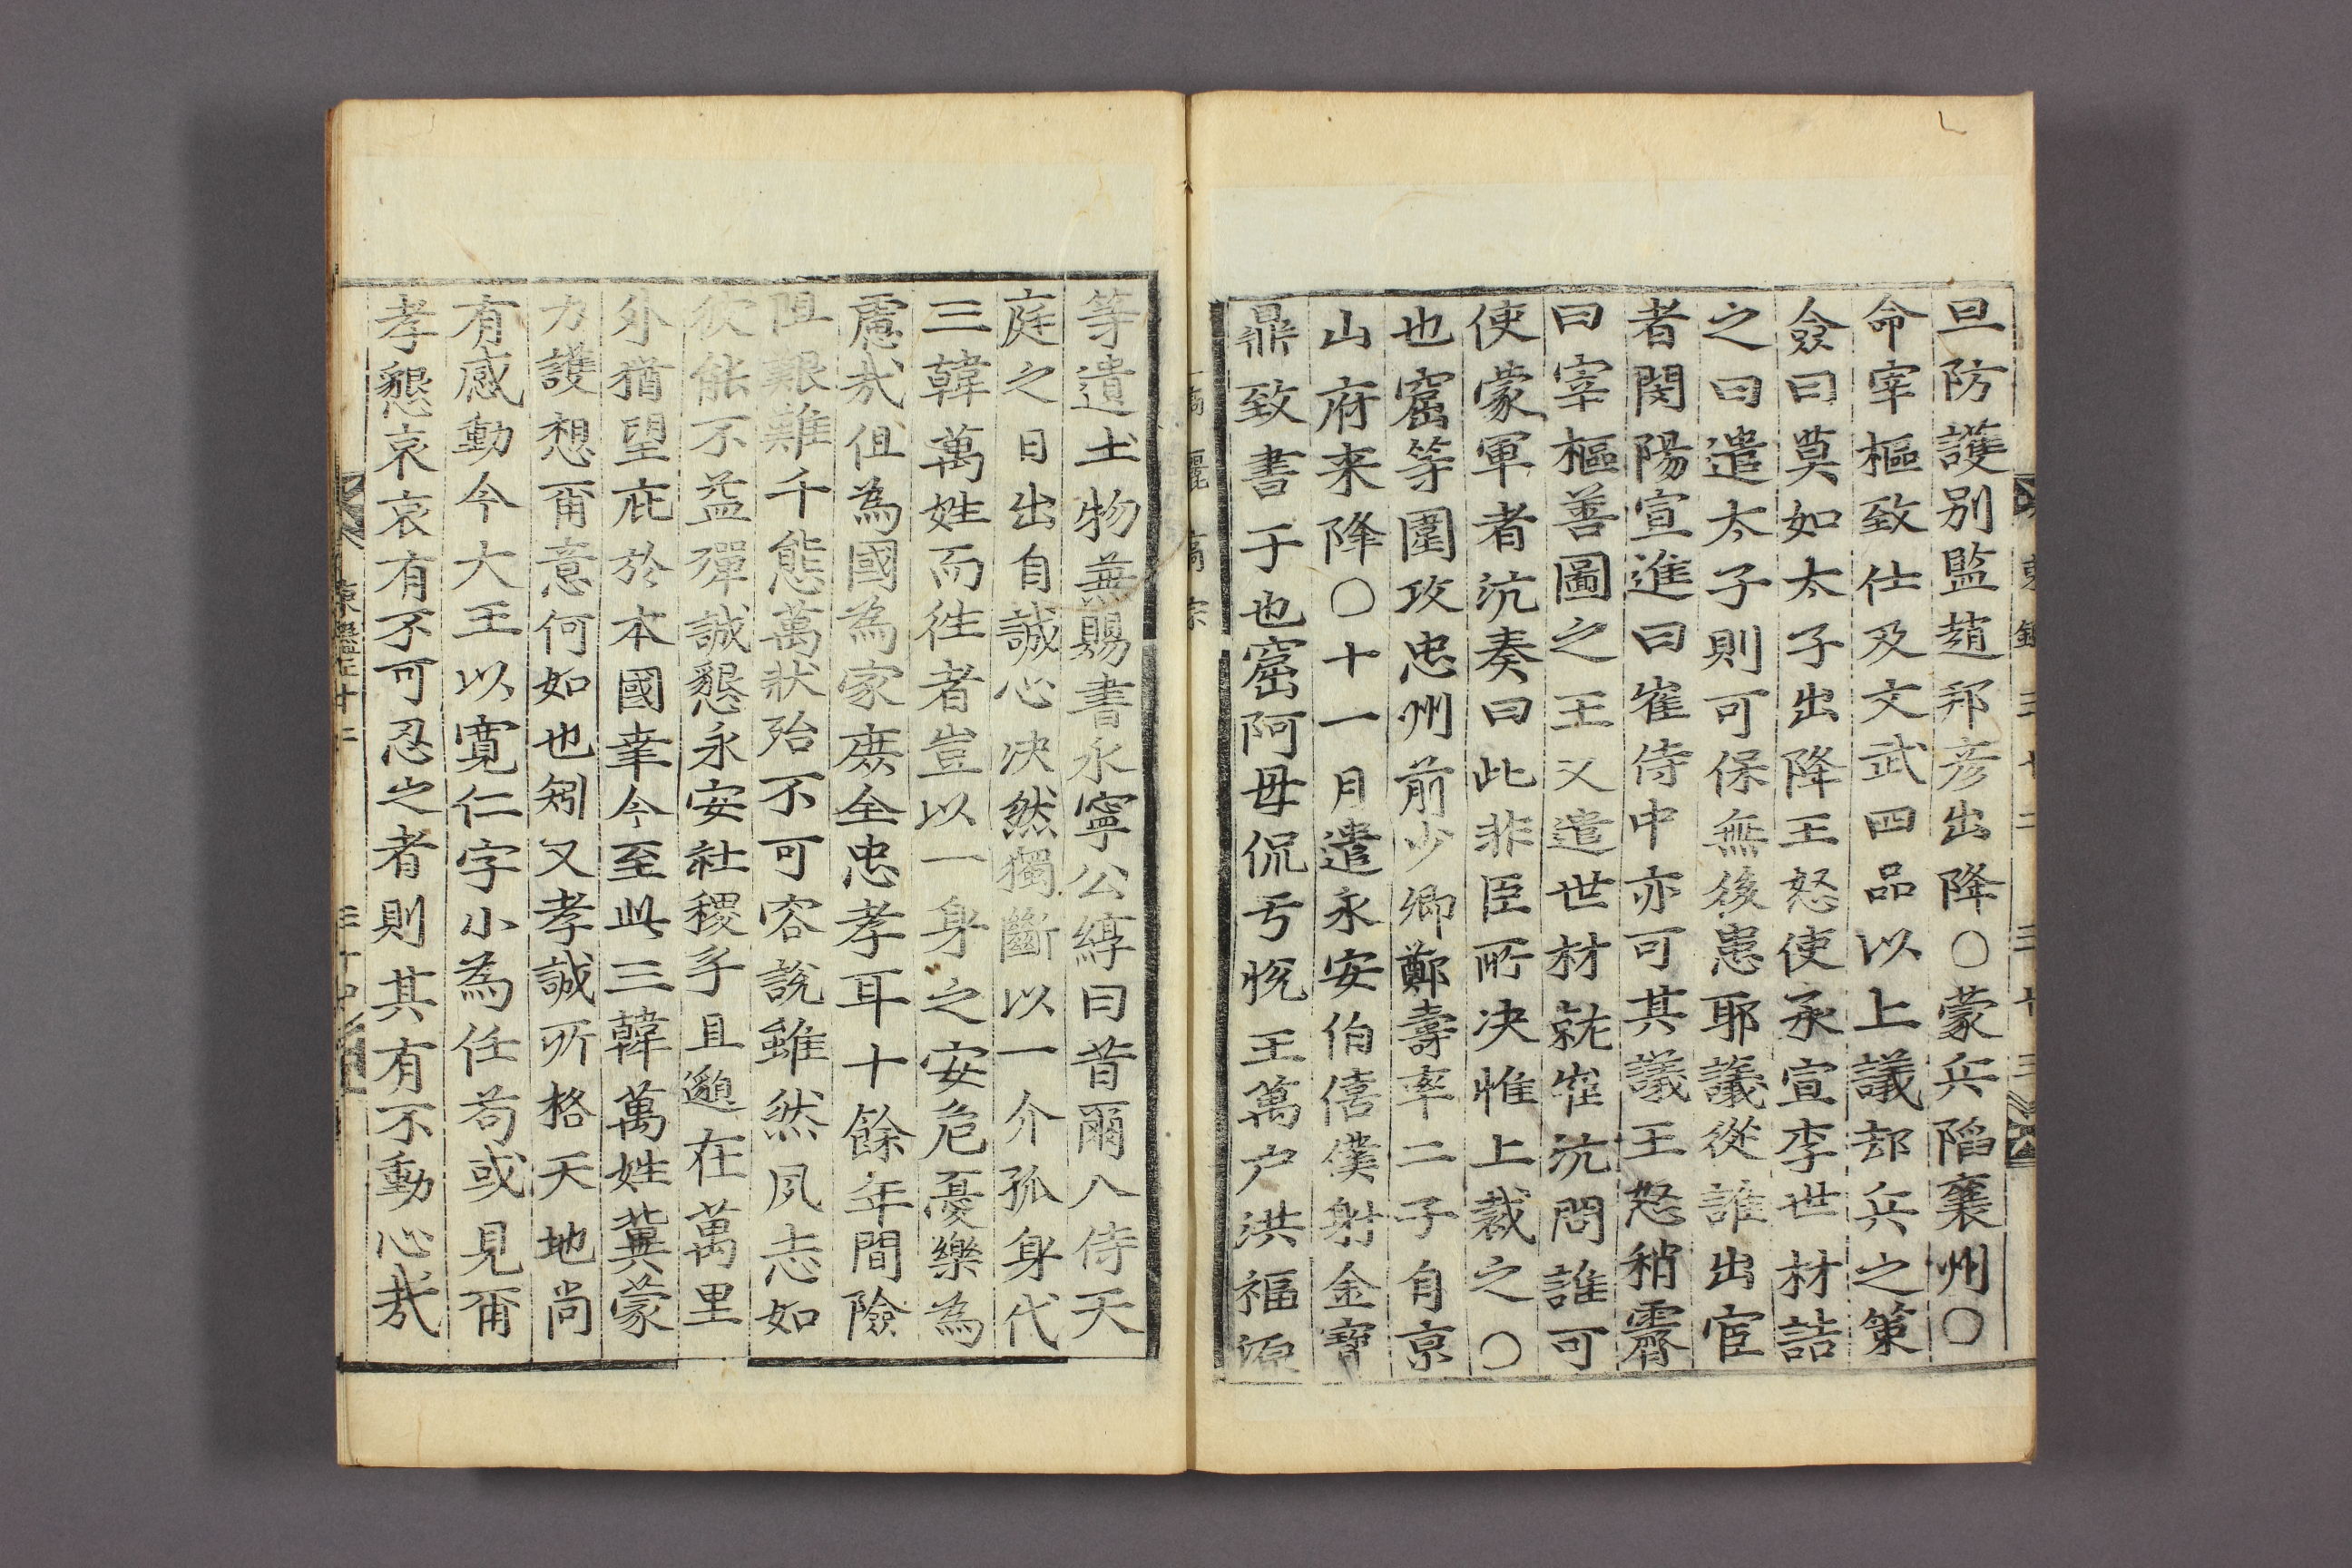 旦防護别監趙邦彦出降○蒙兵陷襄州○
命宰樞致仕及文武四品以上議却兵之策
僉曰莫如太子出降王怒使承宣李世材詰
之曰遣太子則可保無後患耶議從誰出宦
者閔陽宣進曰崔侍中亦可其議王怒稍霽
曰宰樞善圖之王又遣世材就崔沆問誰可
使蒙軍者沆奏曰此非臣所决惟上裁之○
也窟等圍攻忠州前少卿鄭壽率二子自京
山府来降○十一月遣永安伯僖僕射金寶
鼎致書于也窟阿母侃亏恱王萬户洪福源
等遺土物無賜書永寧公綧曰昔爾入侍天
庭之日出自誠心决然獨斷以一介孤身代
三韓萬姓而徃者豈以一身之安危憂樂為
慮㢤伹為國為家庶全忠孝耳十餘年間險
阻艱難千態萬狀殆不可容說雖然夙志如
彼能不益殫誠懇永安社稷乎且邈在萬里
外猶望庇於本國幸今至此三韓萬姓冀蒙
力護想爾意何如也矧又孝誠所格天地尚
有感動今大王以寛仁字小為任苟或見爾
孝懇哀哀有不可忍之者則其有不動心㢤